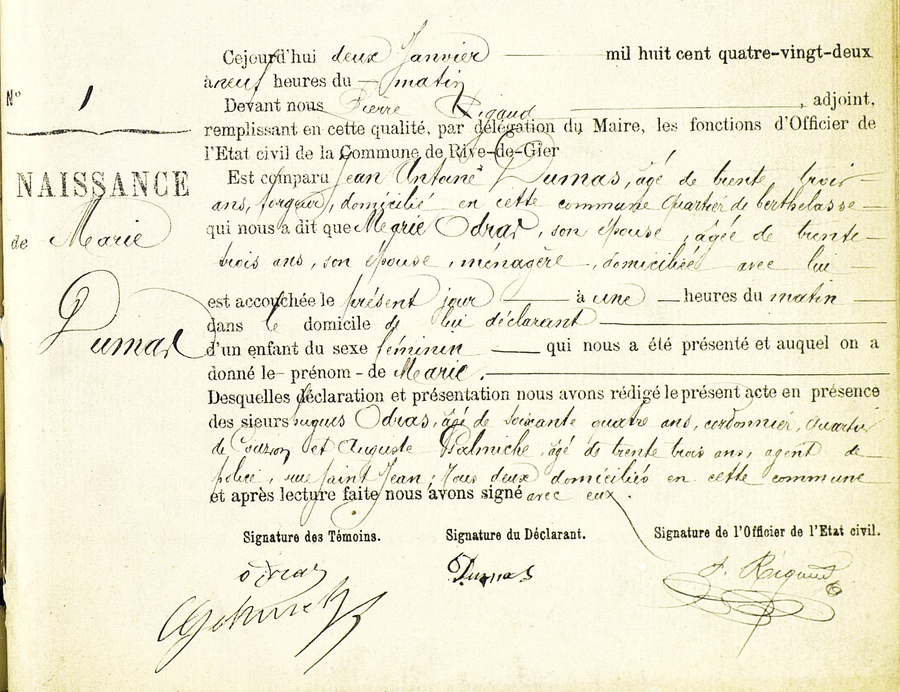 N° 1
NAISSANCE
de Marie
Dumas
Cejourd'hui deux Janvier mil huit cent quatre-vingt-deux
à neuf heures du matin
Devant nous Pierre Rigaud, adjoint,
remplissant en cette qualité, par délégation du Maire, les fonctions d'Officier de
l'Etat civil de la Commune de Rive-de-Gier
Est comparu Jean Antoine Dumas, âgé de trente trois
ans, forgeur, domicilié en cette commune quartier de berthelasse
qui nous a dit que Marie Odras, son épouse, agée de trente-
trois ans, son épouse, ménagère, domiciliée avec lui
est accouchée le présent jour à une heures du matin
dans le domicile de lui déclarant
d'un enfant du sexe féminin qui nous a été présenté et auquel on a
donné le prénom de Marie.
Desquelles déclaration et présentation nous avons rédigé le présent acte en présence
des sieurs hugues Odras, âgé de soixante quatre ans, cordonnier, quartier
de Couzon et Auguste Palmiche, âgé de trente trois ans, agent de
police, rue Saint Jean; tous deux domiciliés en cette commune
et après lecture faite nous avons signé avec eux.
Signature des Témoins. Signature du Déclarant. Signature de l'Officier de l'Etat civil.
odras Dumas P. Rigaud